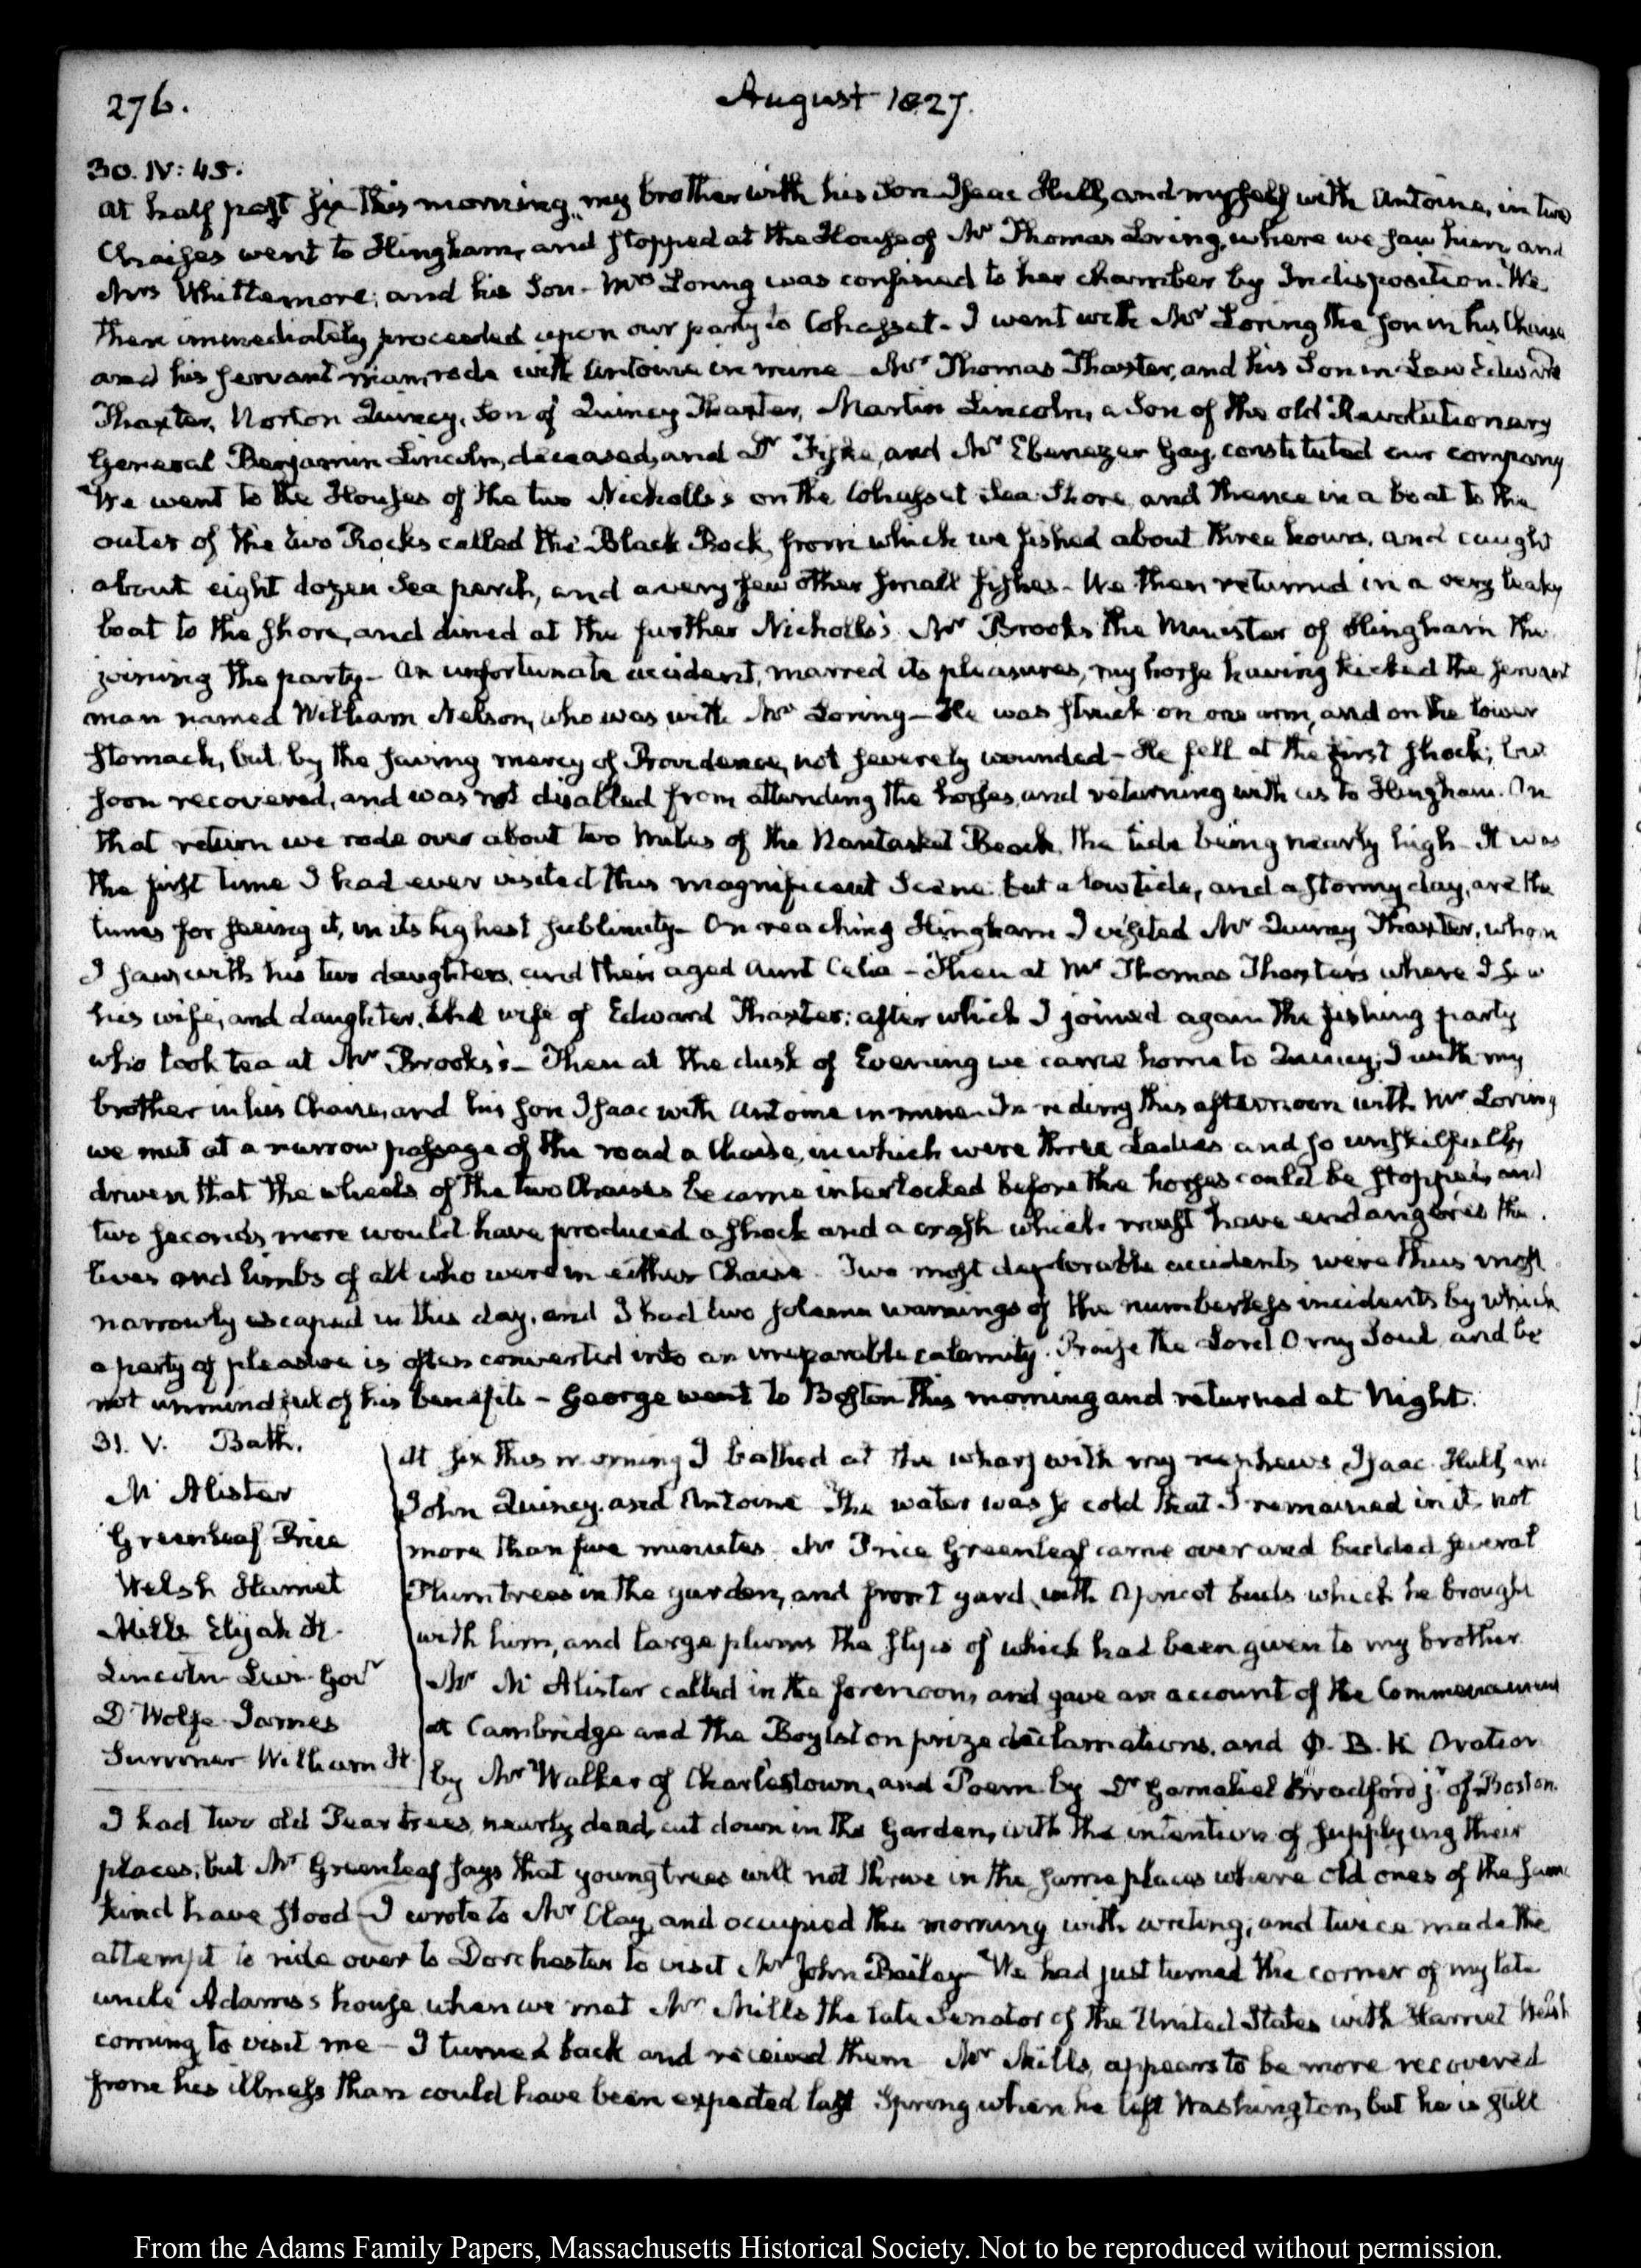 276.
August 1827.
30. IV: 45.
At half past six this morning, my brother with his Son Isaac Hull, and myself with Antoine, in two
Chaises went to Hingham, and stopped at the House of Mr Thomas Loring, where we saw him, and
Mrs Whittemore; and his Son - Mrs Loring was confined to her chamber by Indisposition. We
then immediately proceeded upon our party to Cohasset - I went with Mr Loring the son in his Chaise
and his servant man, rode with Antoine in mine - Mr Thomas Thaxter, and his Son in Law Edward
Thaxter, Norton Quincy, Son of Quincy Thaxter, Martin Lincoln, a Son of the old Revolutionary
General Benjamin Lincoln, deceased, and Dr Fiske, and Mr Ebenezer Gay, constituted our company
We went to the Houses of the two Nicholls's on the Cohasset Sea Shore and thence in a boat to the
outer of the two Rocks called the Black Rock, from which we fished about three hours, and caught
about eight dozen Sea perch, and a very few other small fishes - We then returned in a very leaky
boat to the shore, and dined at the further Nicholls's Mr Brooks the Minister of Hingham the
joining the party - An unfortunate accident, marred its pleasures, my horse having kicked the servant
man named William Nelson, who was with Mr Loring - He was struck on one arm, and on the lower
stomach, but, by the saving mercy of Providence, not severely wounded - He fell at the first shock; but
soon recovered, and was not disabled from attending the horses, and returning with us to Hingham. On
that return we rode over about two miles of the Nantasket Beach, the tide being nearly high - It was
the first time I had ever visited this magnificent Scene. but a low tide, and a stormy day, are the
times for seeing it, in its highest sublimity - On reaching Hingham I visited Mr Quincy Thaxter, whom
I saw, with his two daughters, and their aged Aunt Celia - Then at Mr Thomas Thaxter's where I saw
his wife, and daughter, the wife of Edward Thaxter; after which I joined again the fishing party
who took tea at Mr Brooks's - Then at the dusk of Evening we came home to Quincy; I with my
brother in his Chaise, and his son Isaac with Antoine in mine. In riding this afternoon with Mr Loring
we met at a narrow passage of the road a Chaise, in which were three Ladies and so unskilfully
driven that the wheels of the two Chaises became interlocked before the horses could be stopped, and
two seconds more would have produced a shock and a crash which must have endangered the
lives and limbs of all who were in either Chaise. Two most deplorable accidents were thus most
narrowly escaped in this day, and I had two solemn warnings of the numberless incidents by which
a party of pleasure is often converted into an irreparable calamity. Praise the Lord O my Soul and be
not unmindful of his benefits - George went to Boston this morning and returned at Night.
31. V. Bath.
Mc Alister
Greenleaf Price
Welsh Harriet
Mills Elijah H.
Lincoln Levi Govr
D'Wolfe James
Sumner William H.
At six this morning I bathed at the wharf with my nephews Isaac Hull, and
John Quincy, and Antoine The water was so cold that I remained in it not
more than five minutes. Mr Price Greenleaf came over and budded several
Plum trees in the garden, and front yard, with Apricot buds which he brought
with him, and large plums the slips of which had been given to my brother
Mr Mc Alister called in the forenoon, and gave an account of the Commencement
at Cambridge and the Boylston prize declamations, and Φ. B. K Oration
by Mr Walker of Charlestown, and Poem by Dr Gamaliel Bradford jr of Boston.
I had two old Pear trees, nearly dead, cut down in the Garden, with the intention of supplying their
places; but Mr Greenleaf says that young trees will not thrive in the same places where old ones of the same
kind have stood - I wrote to Mr Clay, and occupied the morning with writing; and twice made the
attempt to ride over to Dorchester to visit Mr John Bailey - We had just turned the corner of my late
uncle Adams's house, when we met Mr Mills the late Senator of the United States with Harriet Welsh
coming to visit me - I turned back and received them Mr Mills, appears to be more recovered
from his illness than could have been expected last Spring when he left Washington, but he is still
From the Adams Family Papers, Massachusetts Historical Society. Not to be reproduced without permission.